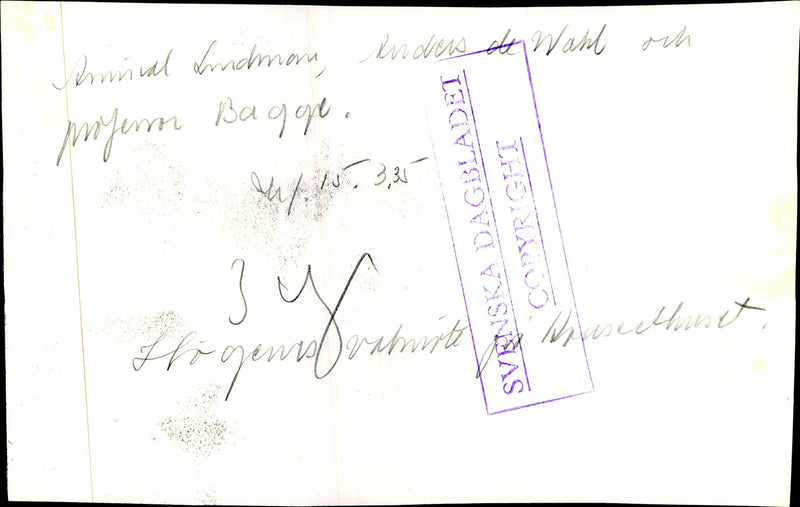 Amiral Lindman, Anders de Wahl och
professor Bagge.
15. 3.35
3
Högerns valmöte på Konserthuset.
SVENSKA DAGBLADET
COPYRIGHT